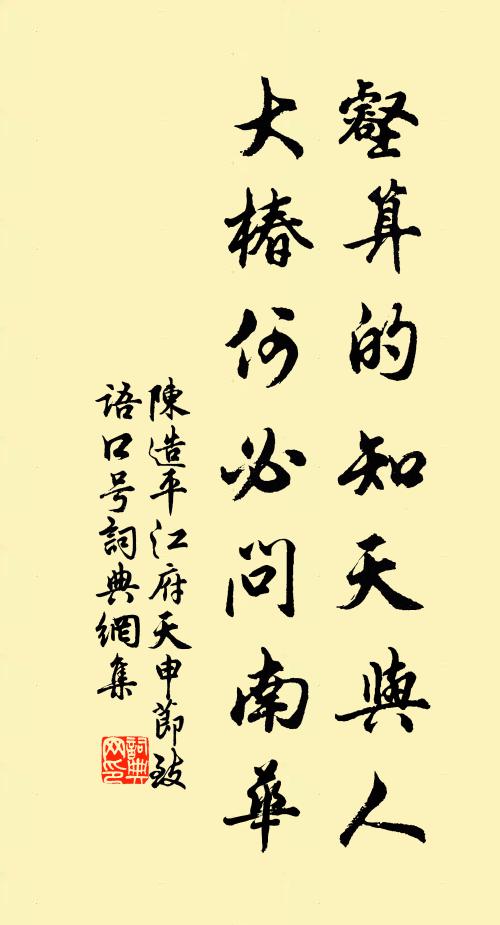 壑算的知天與人
大椿何必問南華
陳造平江府天申節致
語口号詞典網集
詞典網印